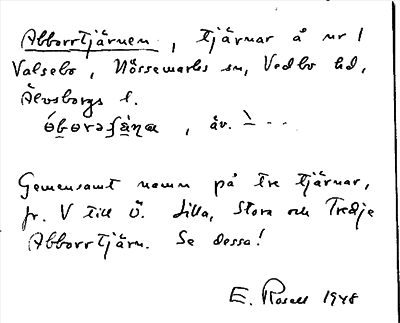 Abborrtjärnen, tjärnar å nr 1
Valsebo, Nössemarks sn, Vedbo hd,
Älvsborgs l.
, äv. `- - -
Gemensamt namn på tre tjärnar,
fr. V till Ö. Lilla, Stora och Tredje
Abborrtjärn. Se dessa!
E. Rosell 1948